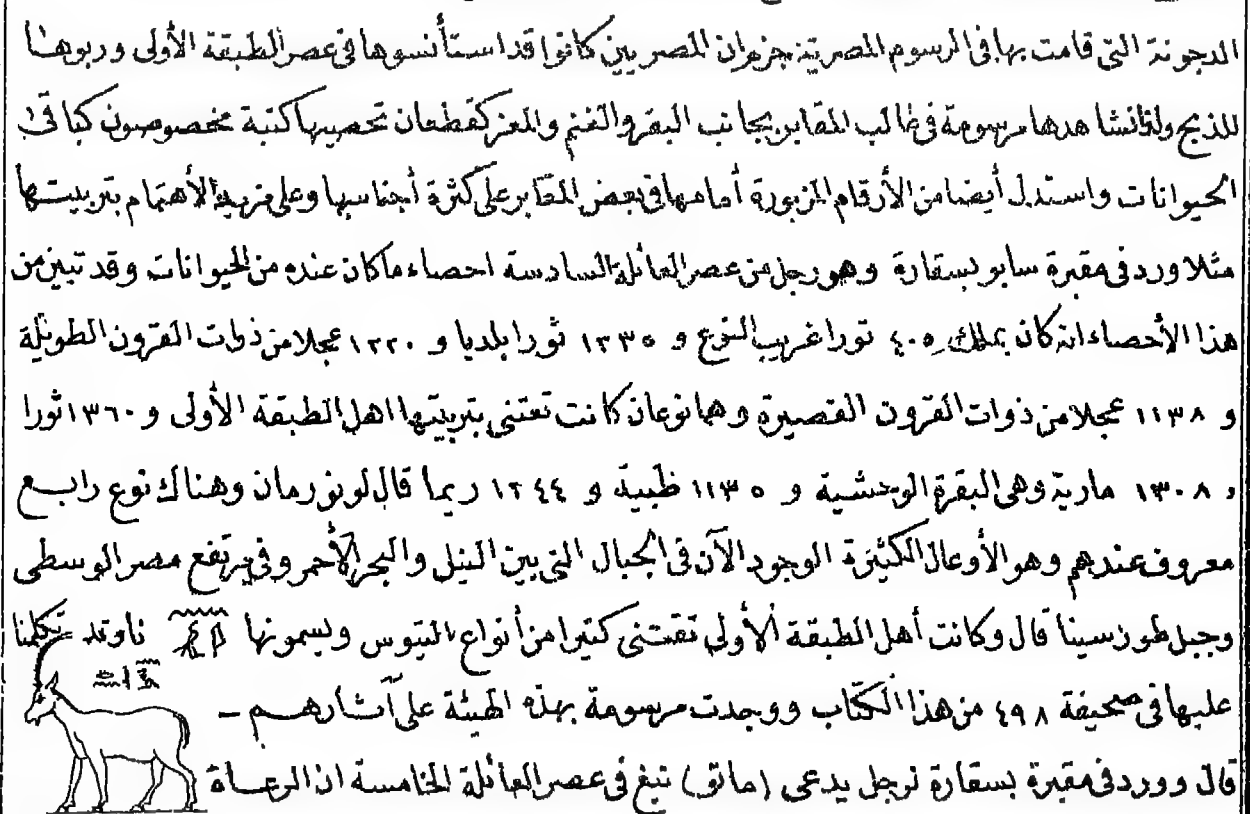 الدجونة التي قامت بها في الرسوم المصرية جزم ان المصريين كانوا قد استأنسوها في عصر الطبقة الأولى وربوها
للذبح ولذا نشاهدها مرسومة في غالب المقابر بجانب البقر والغنم والمعز كقطعان تحصيها كتبة مخصوصون كباقي
الحيوانات واستدل أيضا من الأرقام المزبورة أمامها في بعض المقابر على كثرة أجناسها وعلى مزيد الأهتمام بتربيتها
مثلا ورد في مقبرة سابو بسقارة وهو رجل من عصر العائلة السادسة احصاء ما كان عنده من الحيوانات وقد تبين من
هذا الأحصاء انه كان يملك ٤٠٥ ثورا غريب النوع و ١٢٣٥ ثورا بلديا و ١٢٢٠ عجلا من ذوات القرون الطويلة
و ١١٣٨ عجلا من ذوات القرون القصيرة وهما نوعان كانت تعتني بتربيتها اهل الطبقة الأولى و ١٣٦٠ ثورا
و ١٣٠٨ مارية وهي البقرة الوحشية و ١١٣٥ ظبية و ١٢٤٤ ريما قال لونورمان وهناك نوع رابع
معروف عندهم وهو الأوعال الكثيرة الوجود الآن في الجبال التي بين النيل والبحر الأحمر وفي مرتفع مصر الوسطى
وجبل طور سينا قال وكانت أهل الطبقة الأولى تقتني كثيرا من أنواع التيوس ويسمونها ناو وقد تكلمنا
عليها في صحيفة ٤٩٨ من هذا الكتاب ووجدت مرسومة بهذه الهيئة على آثارهم –
قال وورد في مقبرة بسقارة لرجل يدعى (ماتو) نبغ في عصر العائلة الخامسة ان الرعاة